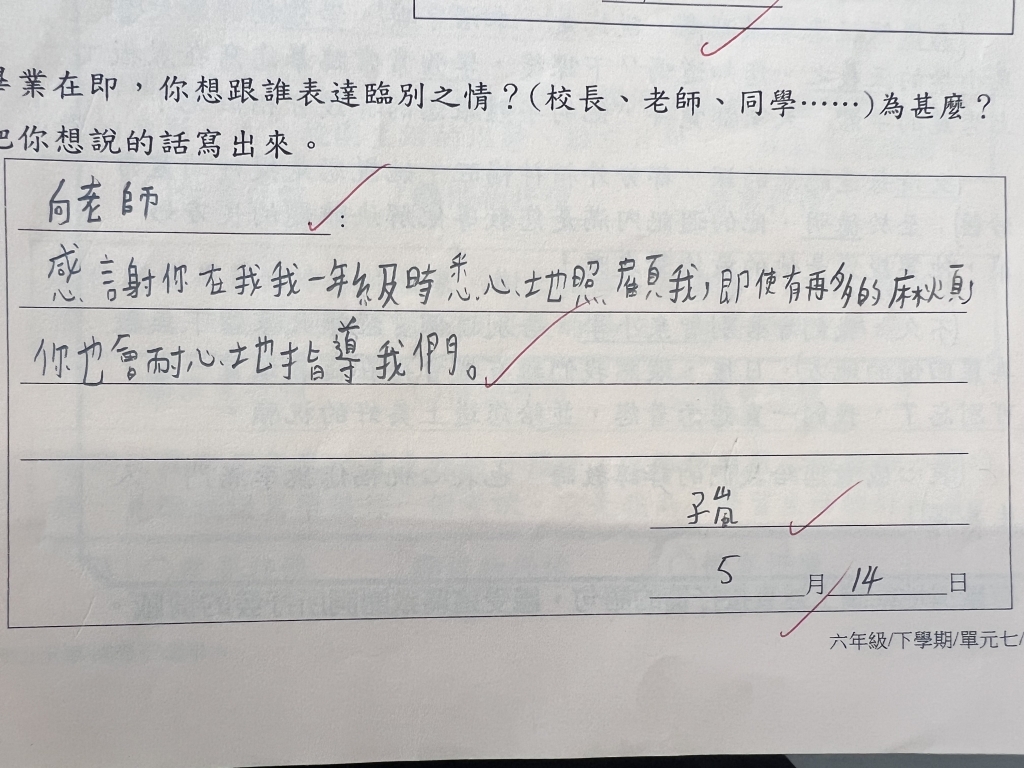 畢業在即，你想跟誰表達臨別之情？(校長、老師、同學……)為甚麼？
把你想說的話寫出來。
向老師：
感謝你在我我一年級時悉心地照顧我，即使有再多的麻煩
你也會耐心地指導我們。
子嵐
5月14日
六年級/下學期/單元七/